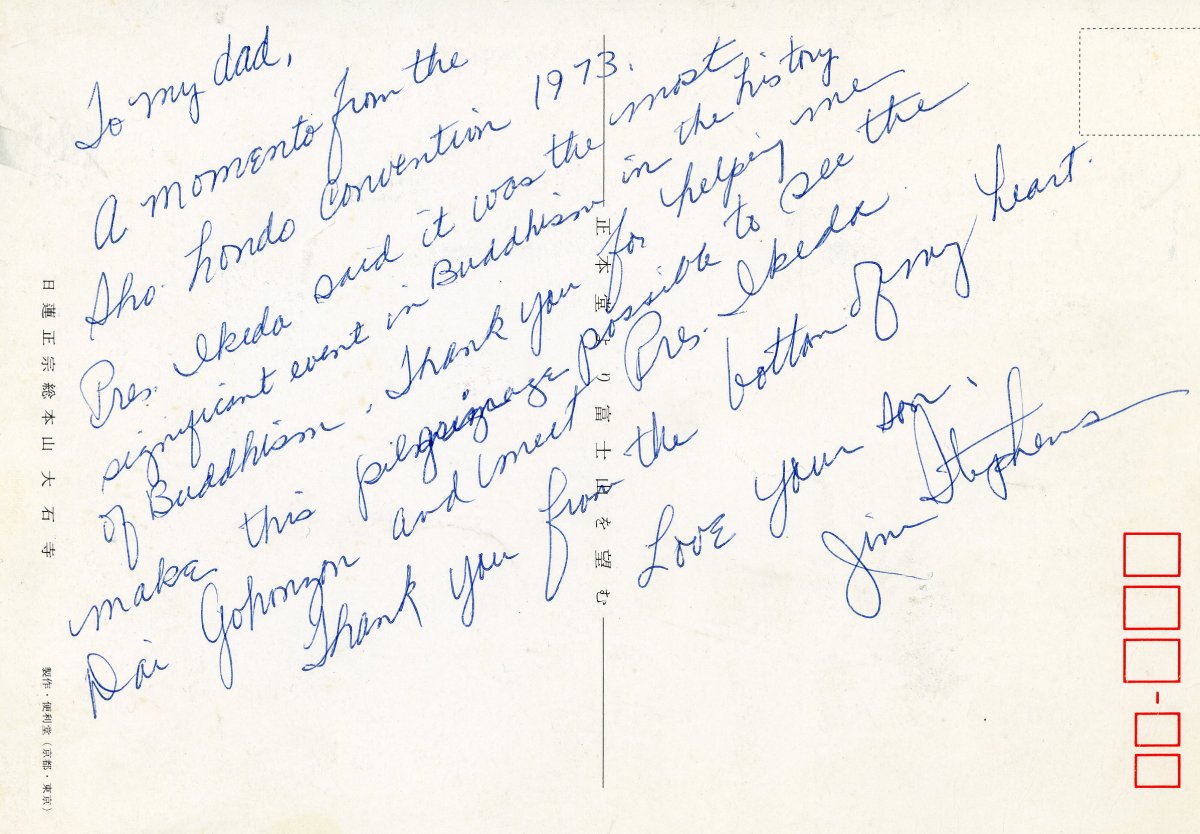 To my dad,
A momento from the
Sho hondo convention 1973.
Pres. Ikeda said it was the most
significant event in Buddhism in the history
of Buddhism. Thank you for helping me
make this pilgrimage possible to see the
Dai Gohonzon and meet Pres. Ikeda
Thank you from the bottom of my heart.
Love your son,
Jim Stephens
正本堂より富士山を望む
日蓮正宗総本山 大石寺
製作・便利堂(京都・東京)